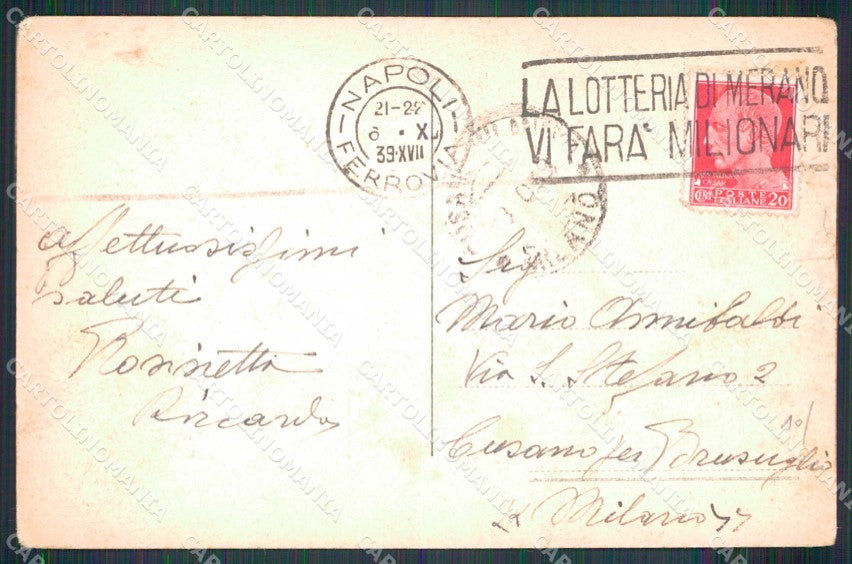 NAPOLI
21-22
6 · X
39·XVII
FERROVIA
LA LOTTERIA DI MERANO
VI FARA' MILIONARI
POSTE
CENT ITALIANE 20
MILANO
affettuosissimi
saluti
Rosinetta
Riccardo
Sig
Mario Annibaldi
Via S. Stefano 2
Cusano per Brusuglio
Milano
CARTOLINOMANIA